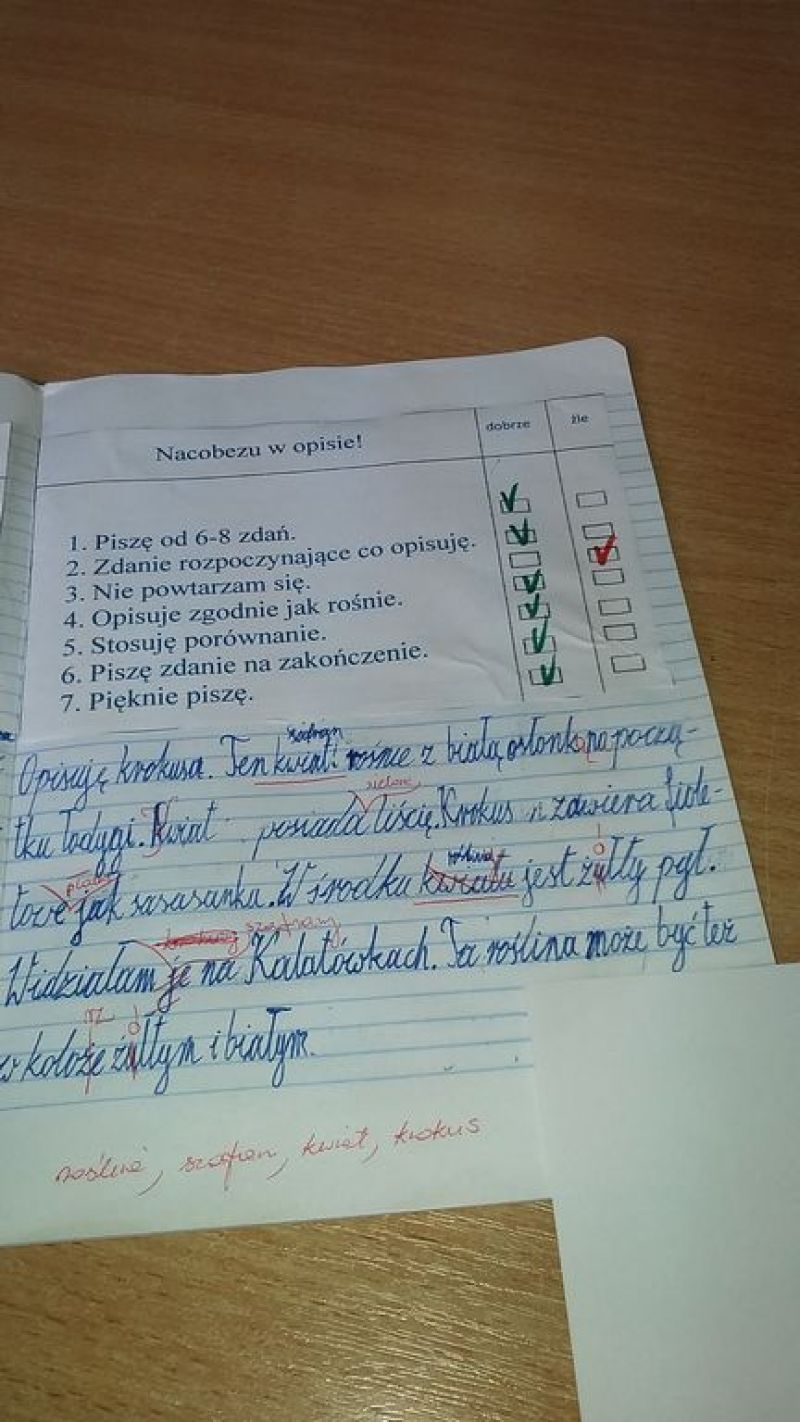 Nacobezu w opisie!
dobrze
źle
1. Piszę od 6-8 zdań.
2. Zdanie rozpoczynające co opisuję.
3. Nie powtarzam się.
4. Opisuje zgodnie jak rośnie.
5. Stosuję porównanie.
6. Piszę zdanie na zakończenie.
7. Pięknie piszę.
szafran
Opisuję krokusa. Ten kwiat rośnie z białą osłonką na począ-
zielone
tku łodygi. Kwiat posiada liście. Krokus zawiera fiole-
płatki roślina ó
towe jak sasasanka. W środku kwiatu jest żułty pył.
krokusy szafrany
Widziałam je na Kalatówkach. Ta roślina może być też
rz ó
w koloże żułtym i białym.
roślina, szafran, kwiat, krokus